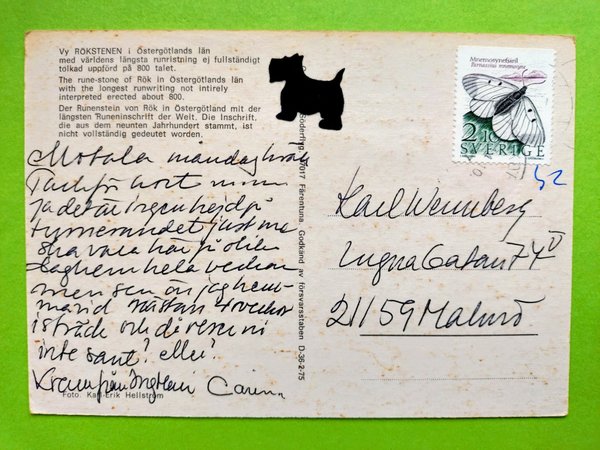 Vy RÖKSTENEN i Östergötlands län
med världens längsta runristning ej fullständigt
tolkad uppförd på 800 talet.
The rune-stone of Rök in Östergötlands län
with the longest runwriting not intirely
interpreted erected about 800.
Der Runenstein von Rök in Östergötland mit der
längsten Runeninschrift der Welt. Die Inschrift,
die aus dem neunten Jahrhundert stammt, ist
nicht vollständig gedeutet worden.
Motala måndag kväll
Tack för kort
Ja det är ingen hejd på
turnerandet just nu
ska vara här på
hela veckan
men sen
nästan 4 veckor
i sträck och då reser ni
inte sant? Eller?
Kram från Carin
Foto: Karl-Erik Hellström
017 Färentuna. Godkänd av försvarsstaben D-36-2-75
Mnemosynefjäril
Parnassius mnemosyne
2.10
SVERIGE
52
Karl Wennberg
Lugna Gatan 74
211 59 Malmö